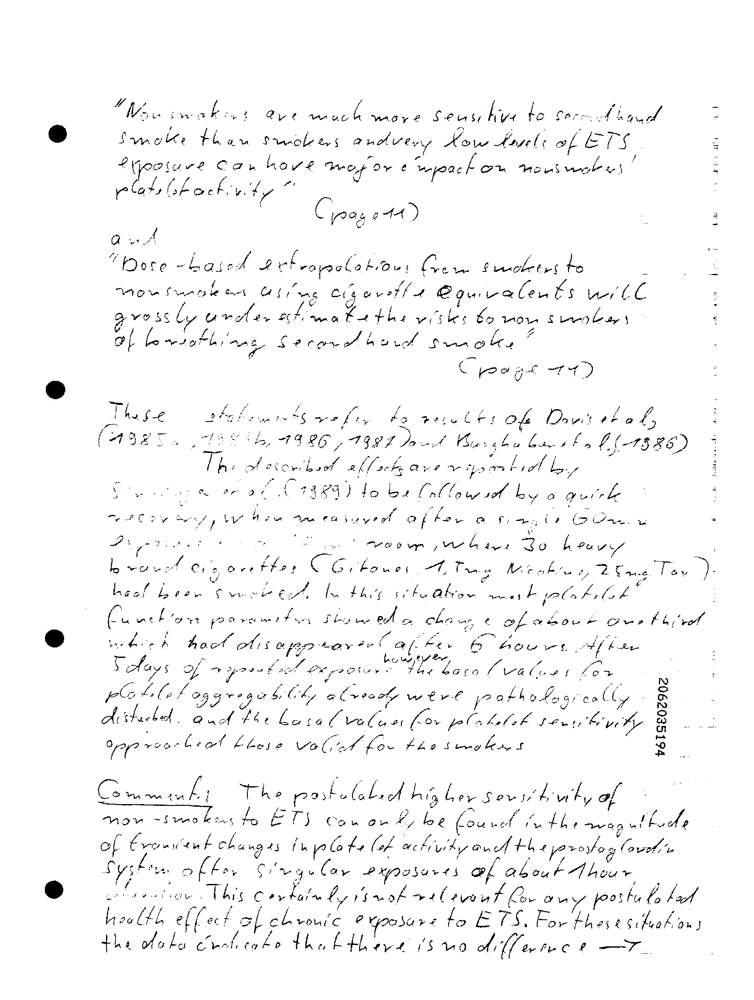 "Nonsmokers are much more sensitive to secondhand
smoke than smokers and very low levels of ETS
exposure can have major impact on nonsmokers'
platelet activity"
(page 11)
and
"Dose-based extrapolations from smokers to
nonsmokers using cigarette equivalents will
grossly underestimate the risks to non smokers
of breathing secondhand smoke"
(page 11)
These statements refer to results of Davis et al,
(1985a, 1985b, 1986, 1987) and Burghuber et al. (1986)
The described effects are reported by
et al. (1989) to be followed by a quick
recovery, when measured after a single 60 min
room, where 30 heavy
brand cigarettes (Gitanes, 1,7mg Nicotine, 25mg Tar)
had been smoked. In this situation most platelet
function parameters showed a change of about one third
which had disappeared after 6 hours. After
5 days of repeated exposure however the basal values for
platelet aggregability already were pathologically
disturbed. and the basal values for platelet sensitivity
approached those valid for the smokers
2062035194
Comment: The postulated higher sensitivity of
non-smokers to ETS can only be found in the magnitude
of transient changes in platelet activity and the prostaglandin
system after singular exposures of about 1 hour
This certainly is not relevant for any postulated
health effect of chronic exposure to ETS. For these situations
the data indicate that there is no difference →